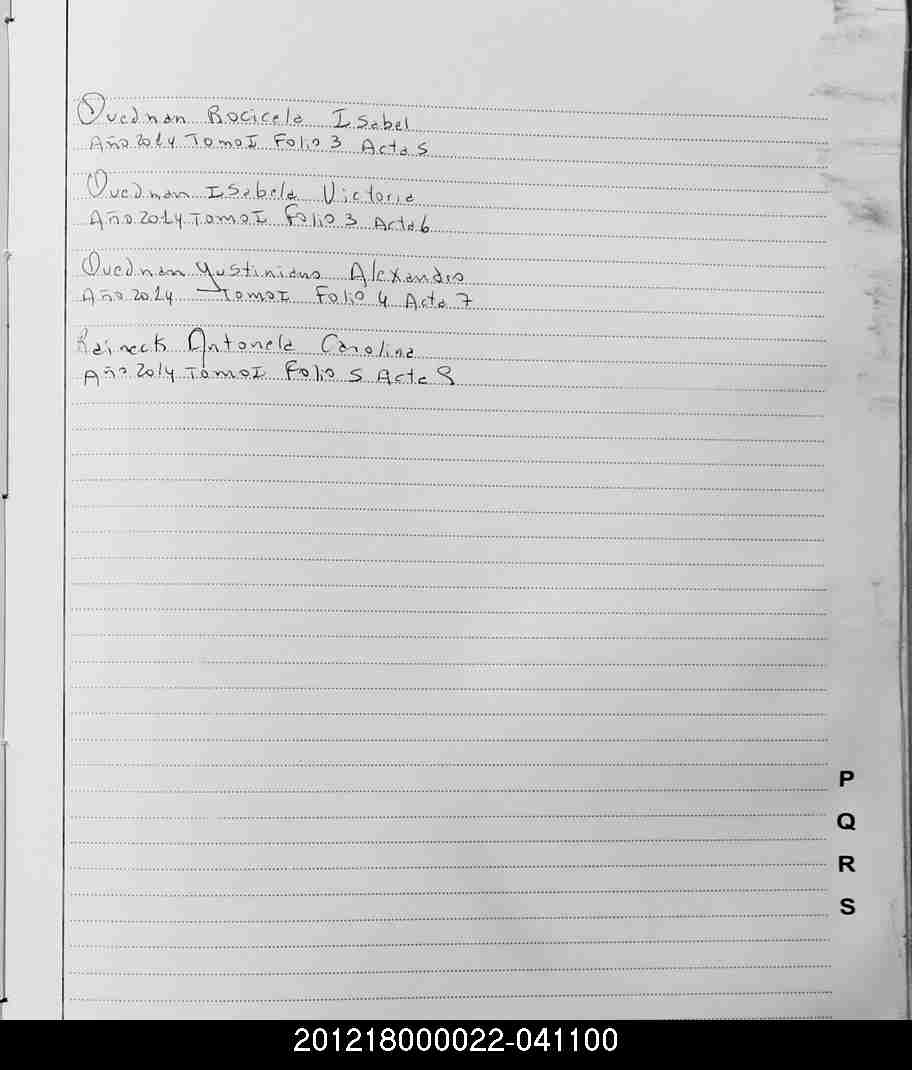 Quednan Rocicela Isabel
Año 2014 Tomo I Folio 3 Acta 5
Quednan Isabela Victoria
Año 2014 Tomo I Folio 3 Acta 6
Quednan Yustiniano Alexandro
Año 2014 Tomo I Folio 4 Acta 7
Raineck Antonela Carolina
Año 2014 Tomo I Folio 5 Acta 9
P
Q
R
S
201218000022-041100